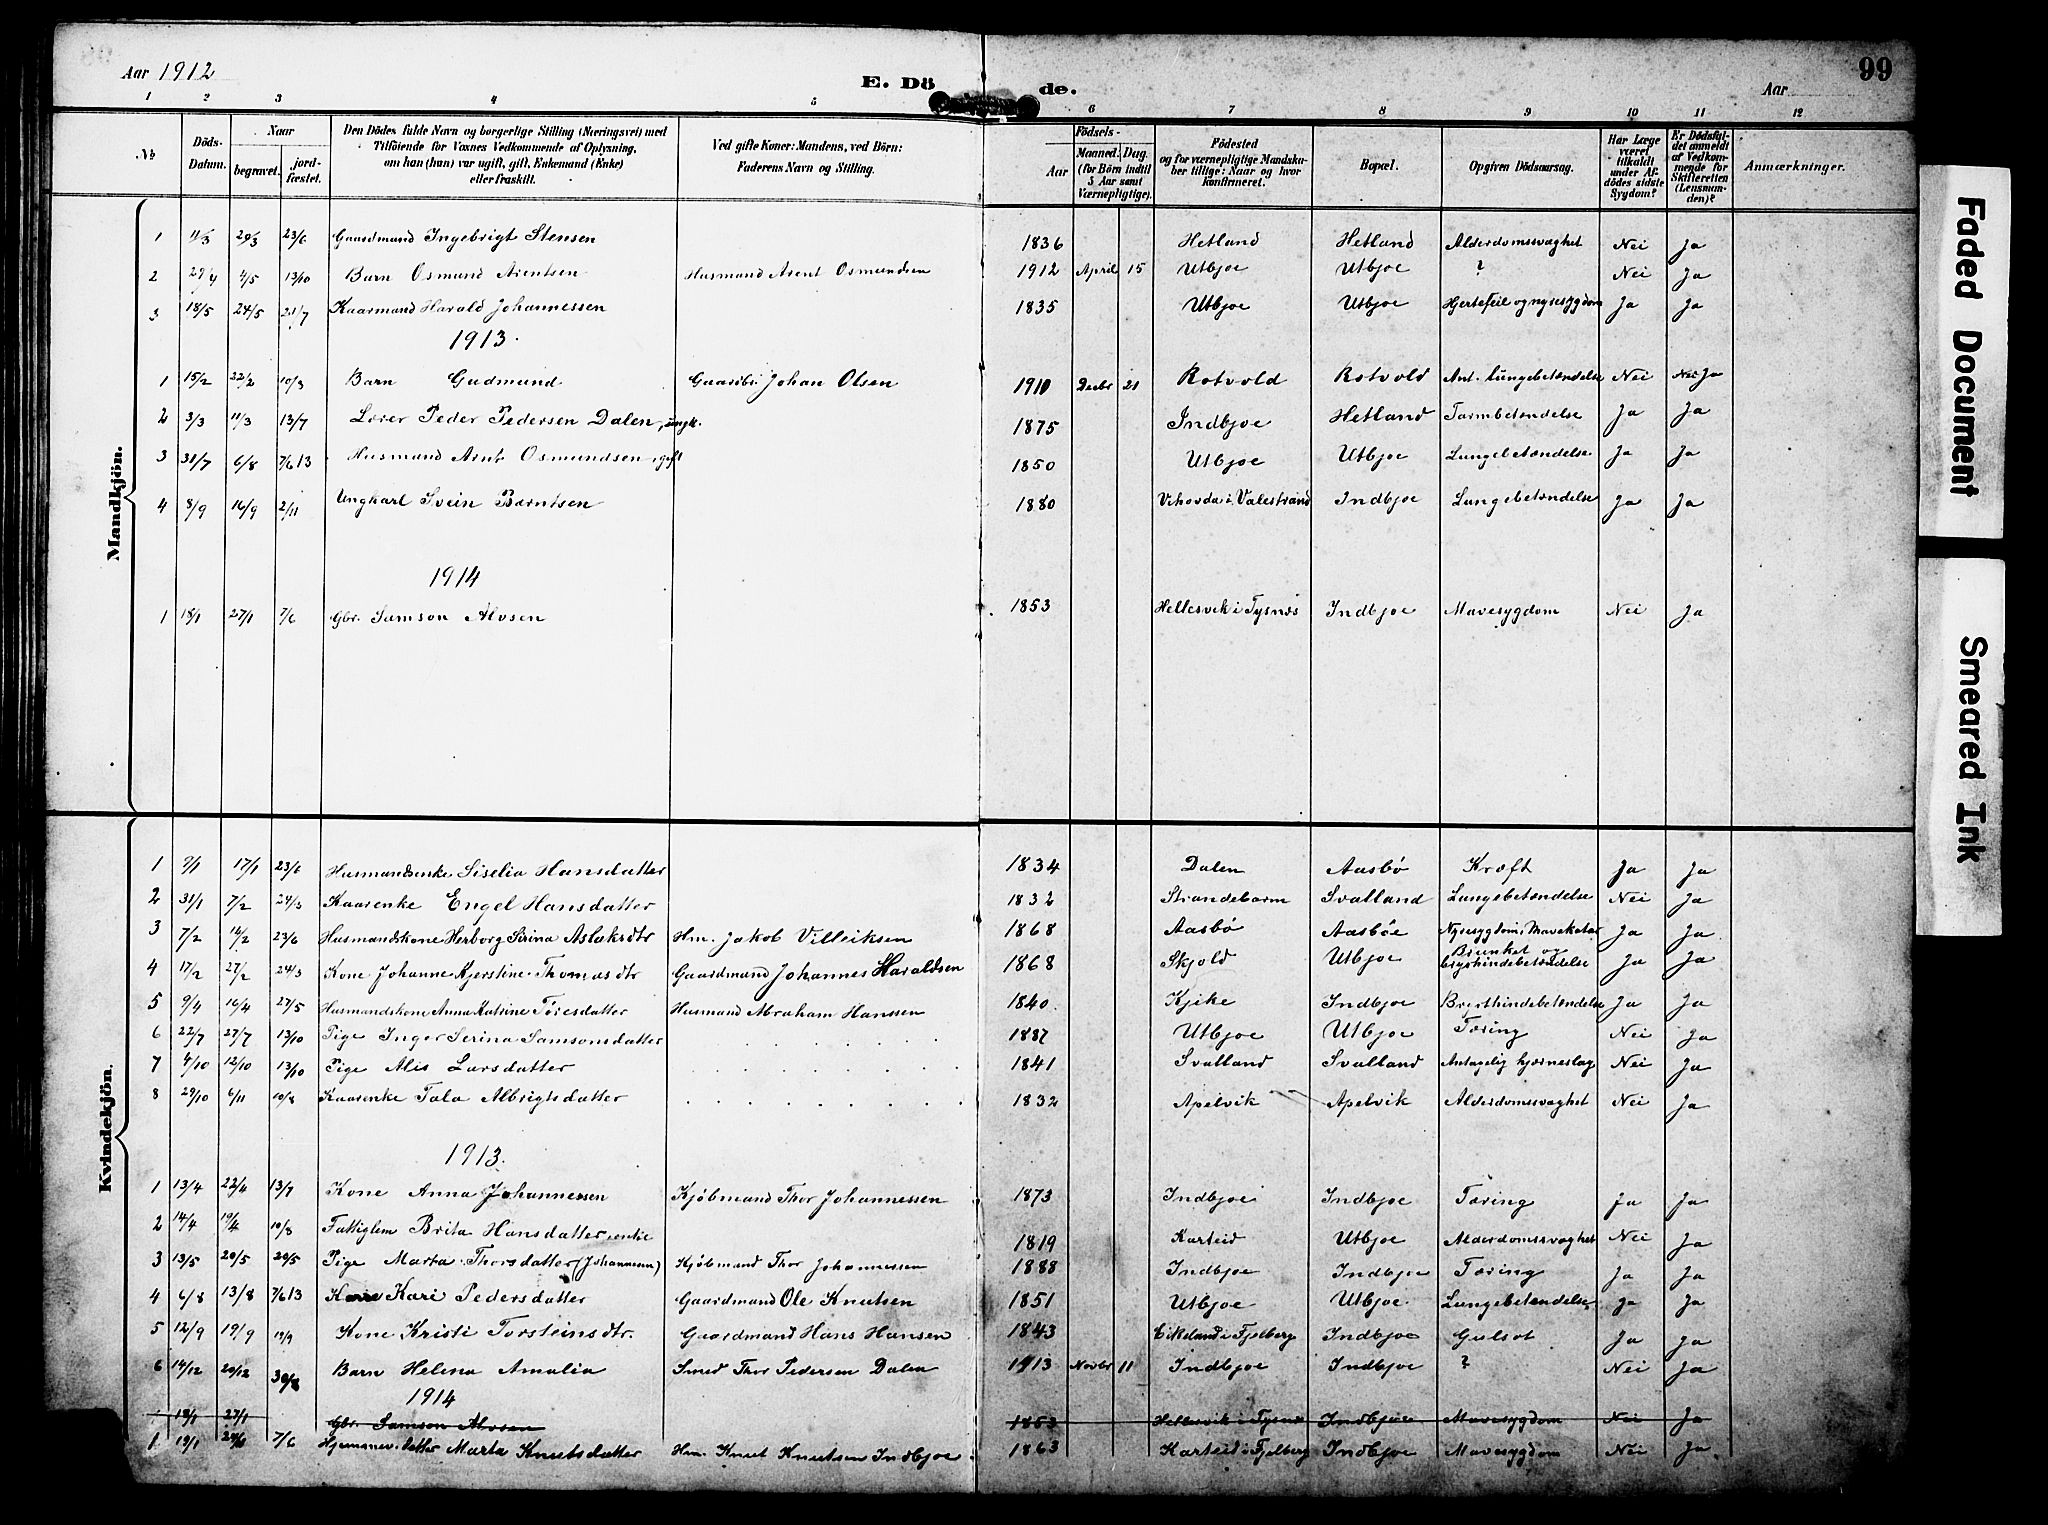 Aar 1912
E. Dö de.
Aar
99
1 2 3 4 5 6 7 8 9 10 11 12
№
Döds-Datum.
Naar
begravet.
jord-fæstet.
Den Dödes fulde Navn og borgerlige Stilling (Næringsvei) med Tilföiende for Voxnes Vedkommende af Oplysning, om han (hun) var ugift, gift, Enkemand (Enke) eller fraskilt.
Ved gifte Koner: Mandens, ved Börn: Faderens Navn og Stilling.
Födsels-
Aar
Maaned. Dag.
(for Börn indtil 5 Aar samt Værnepligtige).
Födested
og for værnepligtige Mandskaber tillige: Naar og hvor konfirmeret.
Bopæl.
Opgiven Dödsaarsag.
Har Læge været tilkaldt under Afdödes sidste Sygdom?
Er Dödsfaldet anmeldt af Vedkommende for Skifteretten (Lensmanden)?
Anmærkninger.
Mandkjön.
1 11/3 29/3 23/6 Gaardmand Ingebrigt Stensen 1836 Hetland Hetland Alderdomssvaghet Nei Ja
2 29/4 4/5 13/10 Barn Osmund Arentsen Husmand Arent Osmundsen 1912 April 15 Utbjoe Utbjoe ? Nei Ja
3 18/5 24/5 21/7 Kaarmand Harald Johannessen 1835 Utbjoe Utbjoe Hertefeil og nyresygdom Ja Ja
1913.
1 15/2 22/2 10/3 Barn Gudmund Gaardbr. Johan Olsen 1910 Decbr 21 Rotvold Rotvold Ant. Lungebetændelse Nei Nei Ja
2 3/3 11/3 13/7 Lærer Peder Pedersen Dalen, ungk. 1875 Indbjoe Hetland Tarmbetændelse Ja Ja
3 31/7 6/8 7/6 13 Husmand Arnt Osmundsen, gift 1850 Utbjoe Utbjoe Lungebetændelse Ja Ja
4 8/9 16/9 2/11 Ungkarl Svein Berntsen 1880 Vihovda i Valestrand Indbjoe Lungebetændelse Ja Ja
1914
1 18/1 27/1 7/6 Gbr. Samson Alvsen 1853 Hellesvik i Tysnes Indbjoe Mavesygdom Nei Ja
Kvindekjön.
1 9/1 17/1 23/6 Husmandsenke Siselia Hansdatter 1834 Dalen Aasbø Kræft Ja Ja
2 31/1 7/2 24/3 Kaarenke Engel Hansdatter 1832 Strandebarm Svalland Lungebetændelse Nei Ja
3 7/2 14/2 23/6 Husmandskone Herborg Serina Aslaksdtr Hm. Jakob Villriksen 1868 Aasbø Aasbøe Nyresygdom, Mavekatar Ja Ja
4 17/2 27/2 24/3 Kone Johanne Kjerstine Thomasdtr Gaardmand Johannes Haraldsen 1868 Skjold Utbjoe og brysthindebetændelse Ja Ja
5 9/4 16/4 27/5 Husmandskone Anna Katrine Tøresdatter Husmand Abraham Hanssen 1840. Kjike Indbjoe Brysthindebetændelse Ja Ja
6 22/7 27/7 13/10 Pige Inger Serina Samsonsdatter 1887 Utbjoe Utbjoe Tæring Nei Ja
7 4/10 12/10 13/10 Pige Alis Larsdatter 1841 Svalland Svalland Antagelig hjerneslag Nei Ja
8 29/10 6/11 10/8 Kaarenke Tala Albrigtsdatter 1832 Apelvik Apelvik Alderdomssvaghet Nei Ja
1913.
1 13/4 22/4 13/7 Kone Anna Johannessen Kjøbmand Thor Johannessen 1873 Indbjoe Indbjoe Tæring Ja Ja
2 14/4 19/4 10/8 Fattiglem Brita Hansdatter, enke 1819 Karteid Utbjoe Alderdomssvaghet Nei Ja
3 13/5 20/5 20/5 Pige Marta Thorsdatter (Johannessen) Kjøbmand Thor Johannessen 1888 Indbjoe Indbjoe Tæring Ja Ja
4 6/8 13/8 7/6 13 Kone Kari Pedersdatter Gaardmand Ole Knutsen 1851 Utbjoe Utbjoe Lungebetændelse Ja Ja
5 12/9 19/9 19/9 Kone Kristi Torsteinsdtr. Gaardmand Hans Hansen 1843 Eikeland i Fjelberg Indbjoe Gulsot Ja Ja
6 14/12 20/12 30/8 Barn Helena Amalia Smed Thor Pedersen Dalen 1913 Novbr 11 Indbjoe Indbjoe ? Nei Ja
1914
18/1 27/1 Gbr. Samson Alvsen 1853 Hellesvik i Tysnes Indbjoe Mavesygdom Nei Ja
1 19/1 7/6 Marta Knutsdatter Hm. Knut Knutsen Indbjoe. 1863 Karteid i Fjelberg Indbjoe Mavesygdom Nei Ja
Faded Document
Smeared Ink